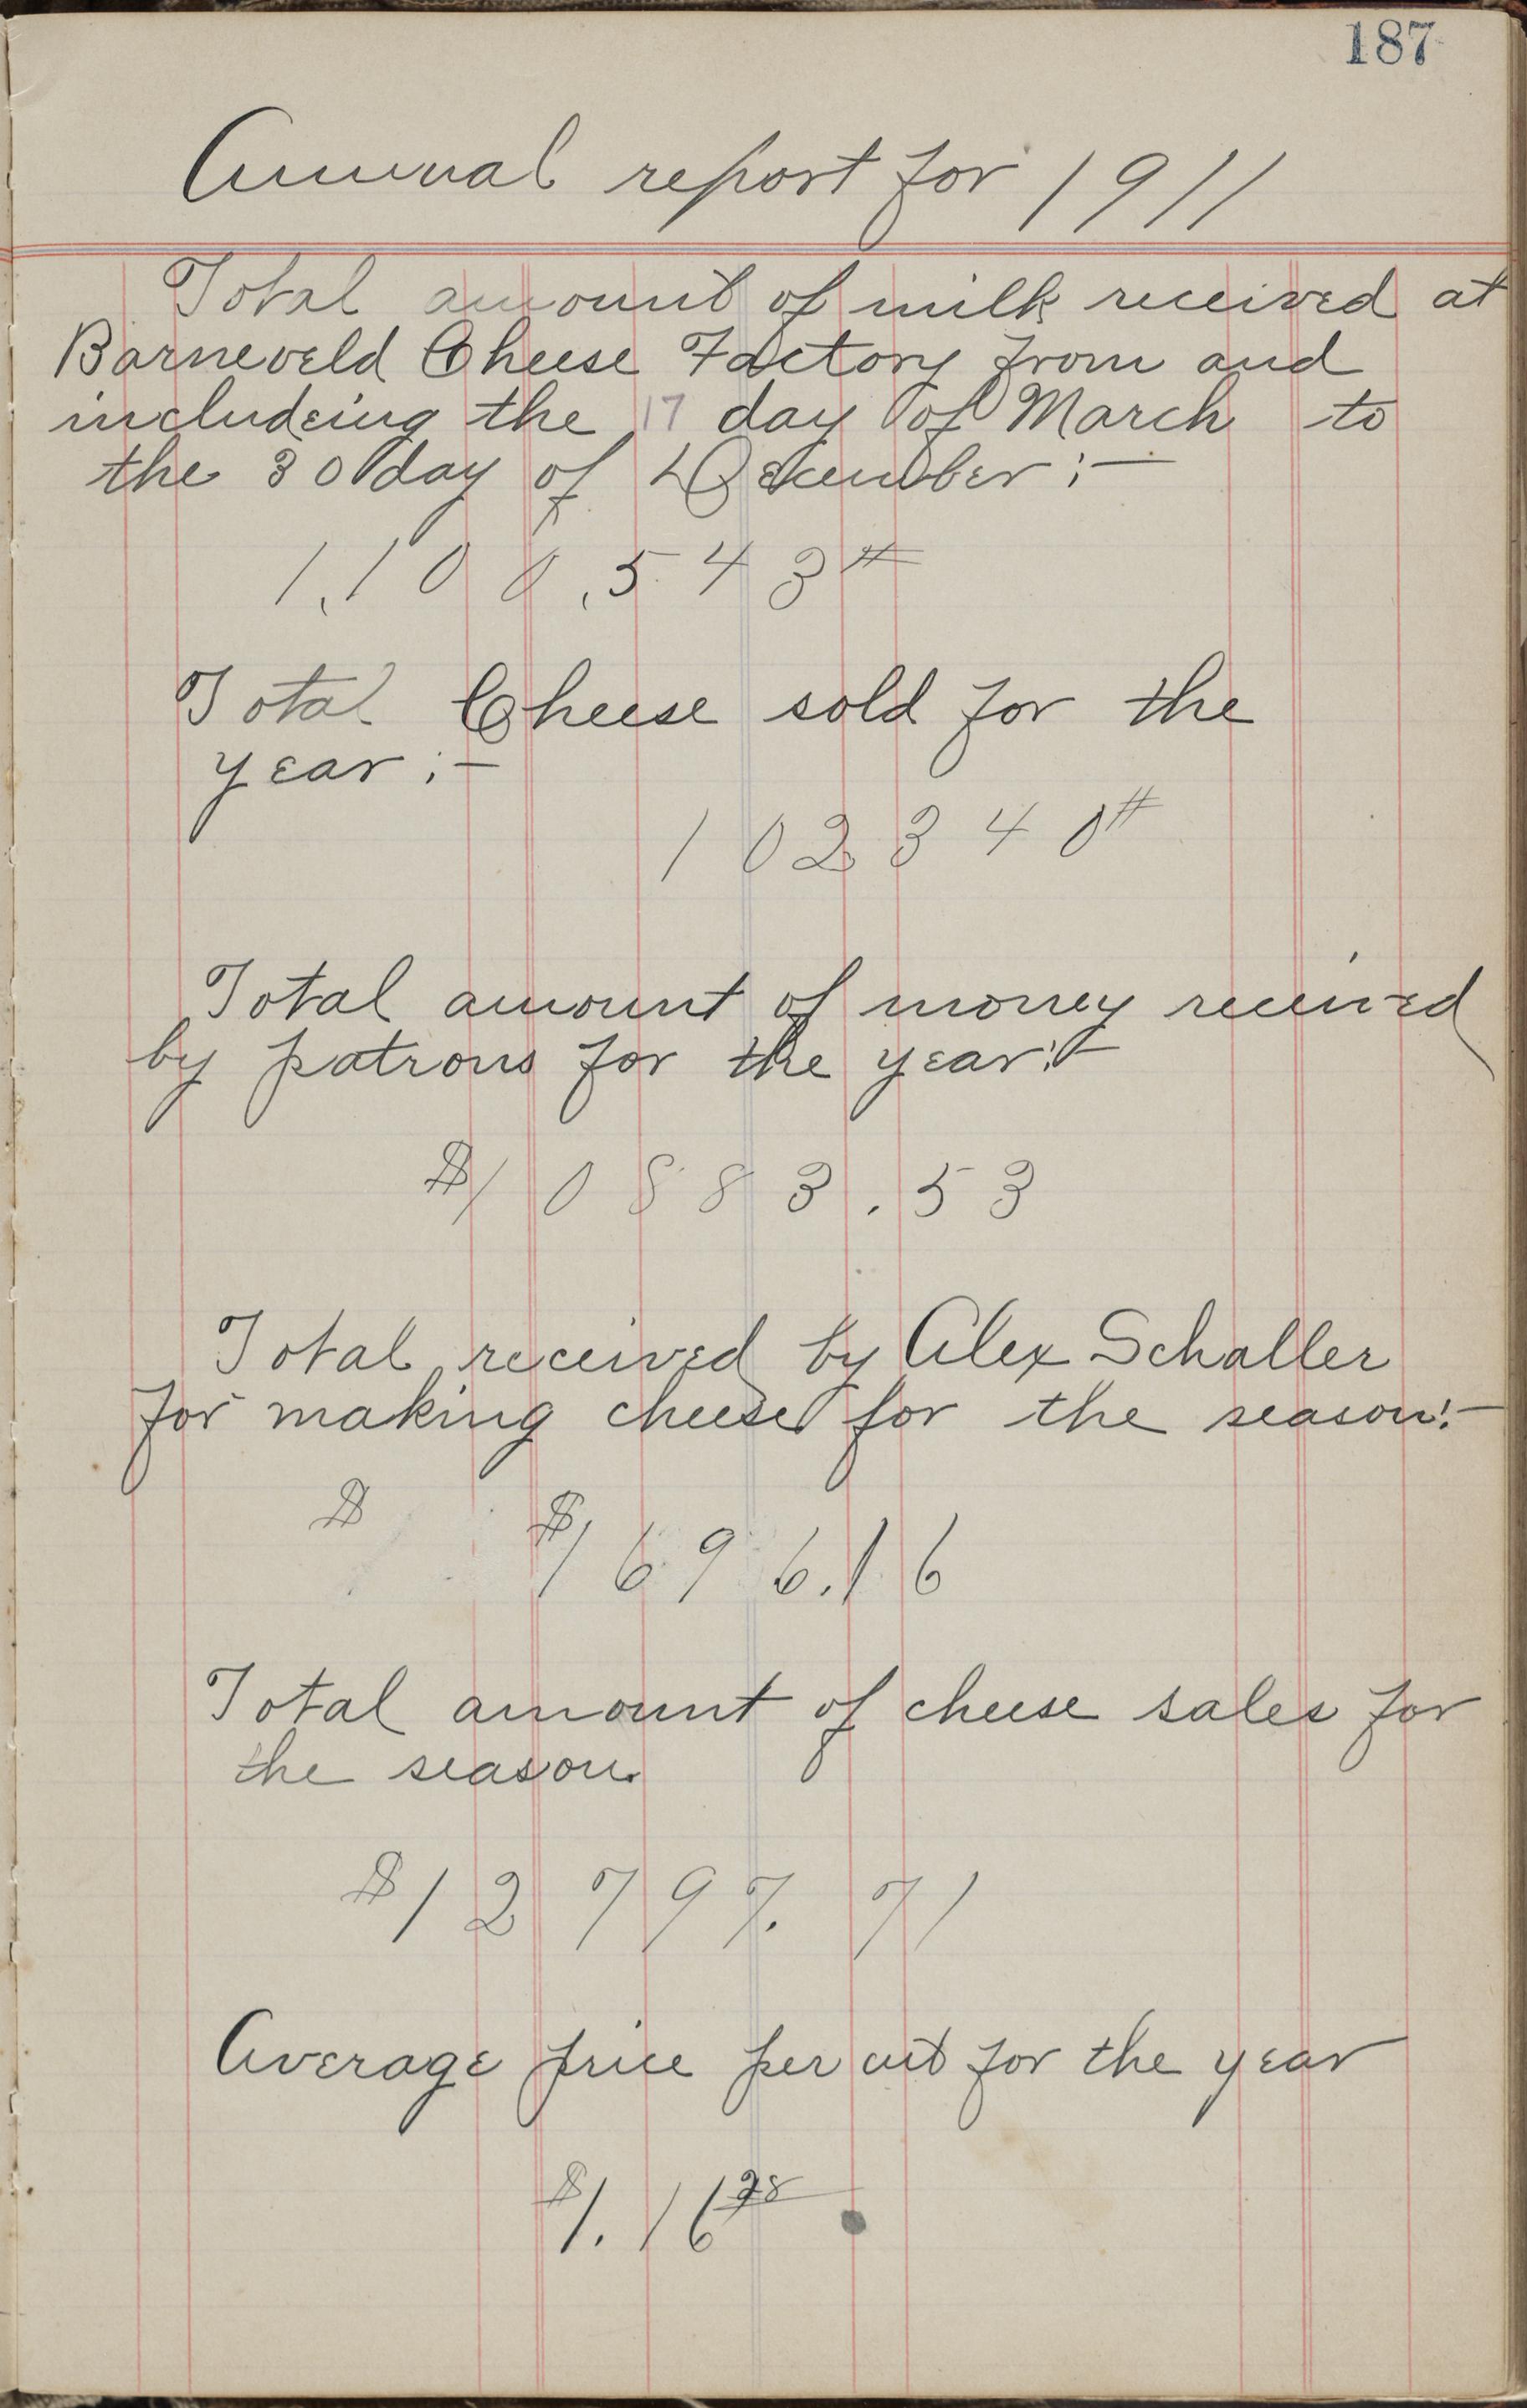 187
Annual report for 1911
Total amount of milk received at
Barneveld Cheese Factory from and
includeing the 17 day of March to
the 30 day of December:-
1,100,543#
Total Cheese sold for the
year:-
102340#
Total amount of money received
by patrons for the year:-
$10883.53
Total received by Alex Schaller
for making cheese for the season:-
$ $1696.16
Total amount of cheese sales for
the season.
$12797.71
Average price per cwt for the year
$1.16 28